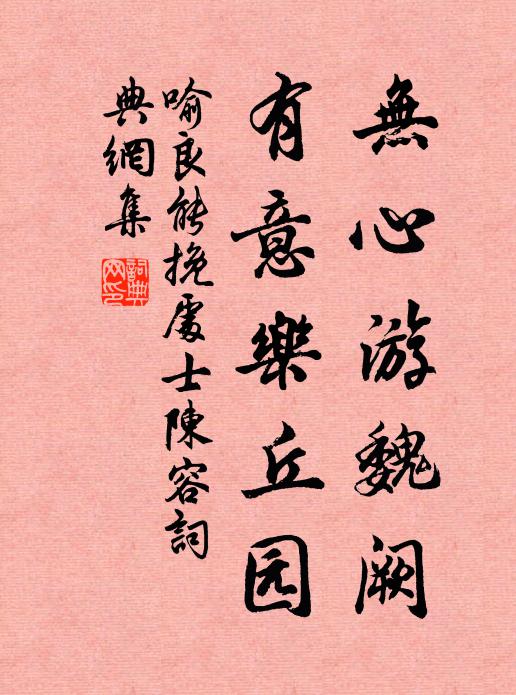 無心游魏阙
有意樂丘园
喻良能挽處士陳容詞
典網集
詞典网印